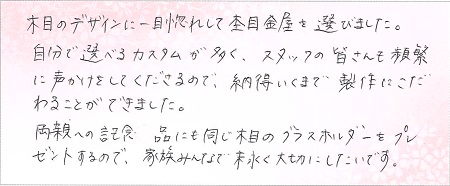 木目のデザインに一目惚れして杢目金屋を選びました。
自分で選べるカスタムが多く、スタッフの皆さんも頻繁
に声かけをしてくださるので、納得いくまで製作にこだ
わることができました。
両親への記念 品にも同じ木目のグラスホルダーをプレ
ゼントするので、家族みんなで末永く大切にしたいです。